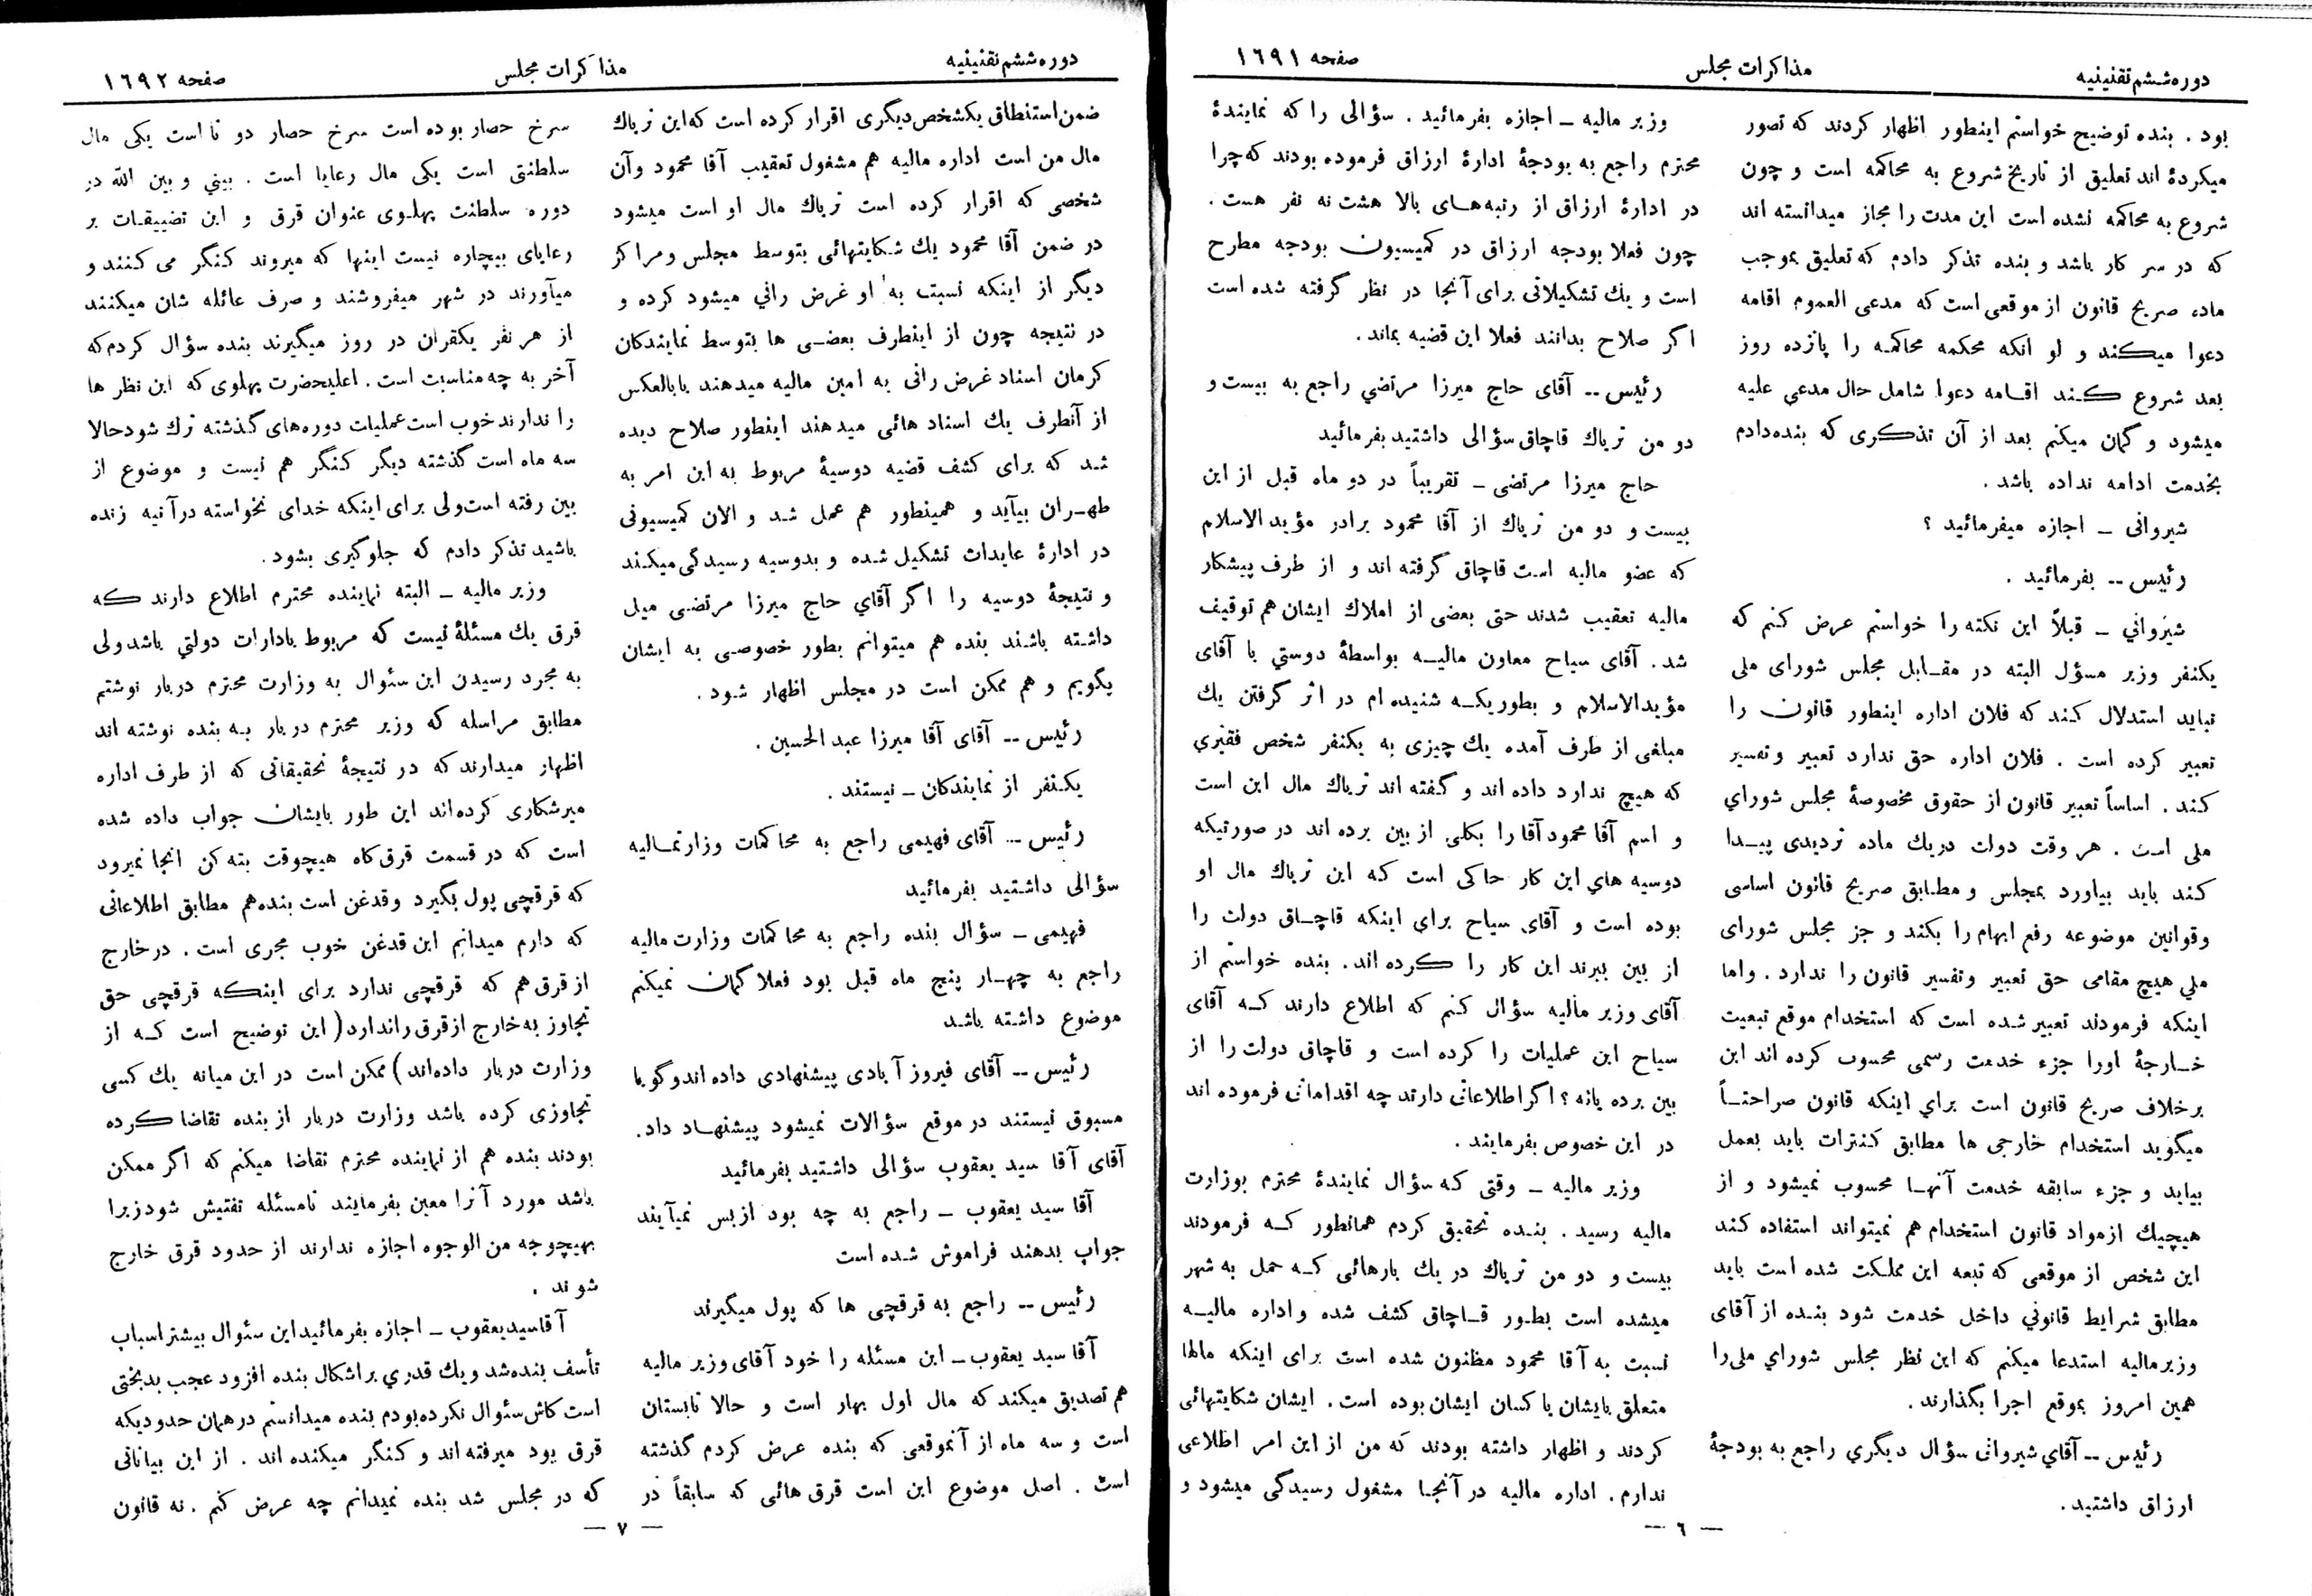 دوره ششم تقنینیه
مذاکرات مجلس
صفحه ۱۶۹۱
بود . بنده توضیح خواستم اینطور اظهار کردند که تصور
میکردۀ اند تعلیق از تاریخ شروع به محاکمه است و چون
شروع به محاکمه نشده است این مدت را مجاز میدانسته اند
که در سر کار باشد و بنده تذکر دادم که تعلیق بموجب
ماده صریح قانون از موقعی است که مدعی العموم اقامه
دعوا میکند و لو انکه محکمه محاکمه را پانزده روز
بعد شروع کند اقامه دعوا شامل حال مدعی علیه
میشود و گمان میکنم بعد از آن تذکری که بنده دادم
بخدمت ادامه نداده باشد .
شیروانی ــ اجازه میفرمائید ؟
رئیس ــ بفرمائید .
شیروانی ــ قبلاً این نکته را خواستم عرض کنم که
یکنفر وزیر مسؤل البته در مقابل مجلس شورای ملی
نباید استدلال کند که فلان اداره اینطور قانون را
تعبیر کرده است . فلان اداره حق ندارد تعبیر و تفسیر
کند . اساساً تعبیر قانون از حقوق مخصوصۀ مجلس شورای
ملی است . هر وقت دولت در یك ماده تردیدی پیدا
کند باید بیاورد بمجلس و مطابق صریح قانون اساسی
وقوانین موضوعه رفع ابهام را بکند و جز مجلس شورای
ملی هیچ مقامی حق تعبیر وتفسیر قانون را ندارد . واما
اینکه فرمودند تعبیر شده است که استخدام موقع تبعیت
خارجۀ اورا جزء خدمت رسمی محسوب کرده اند این
برخلاف صریح قانون است برای اینکه قانون صراحتاً
میگوید استخدام خارجی ها مطابق کنترات باید بعمل
بیاید و جزء سابقه خدمت آنها محسوب نمیشود و از
هیچیك ازمواد قانون استخدام هم نمیتواند استفاده کند
این شخص از موقعی که تبعه این مملکت شده است باید
مطابق شرایط قانونی داخل خدمت شود بنده از آقای
وزیرمالیه استدعا میکنم که این نظر مجلس شورای ملی را
همین امروز بموقع اجرا بگذارند .
رئیس ــ آقای شیروانی سؤال دیگری راجع به بودجۀ
ارزاق داشتید .
وزیر مالیه ــ اجازه بفرمائید . سؤالی را که نمایندۀ
محترم راجع به بودجۀ ادارۀ ارزاق فرموده بودند که چرا
در ادارۀ ارزاق از رتبه های بالا هشت نه نفر هست .
چون فعلا بودجه ارزاق در کمیسیون بودجه مطرح
است و یك تشکیلاتی برای آنجا در نظر گرفته شده است
اگر صلاح بدانند فعلا این قضیه بماند .
رئیس ــ آقای حاج میرزا مرتضی راجع به بیست و
دو من تریاك قاچاق سؤالی داشتید بفرمائید
حاج میرزا مرتضی ــ تقریباً در دو ماه قبل از این
بیست و دو من تریاك از آقا محمود برادر مؤید الاسلام
که عضو مالیه است قاچاق گرفته اند و از طرف پیشکار
مالیه تعقیب شدند حتی بعضی از املاك ایشان هم توقیف
شد . آقای سیاح معاون مالیه بواسطۀ دوستی با آقای
مؤیدالاسلام و بطوریکه شنیده ام در اثر گرفتن یك
مبلغی از طرف آمده یك چیزی به یکنفر شخص فقیری
که هیچ ندارد داده اند و گفته اند تریاك مال این است
و اسم آقا محمود آقا را بکلی از بین برده اند در صورتیکه
دوسیه های این کار حاکی است که این تریاك مال او
بوده است و آقای سیاح برای اینکه قاچاق دولت را
از بین ببرند این کار را کرده اند . بنده خواستم از
آقای وزیر مالیه سؤال کنم که اطلاع دارند که آقای
سیاح این عملیات را کرده است و قاچاق دولت را از
بین برده یانه ؟ اگر اطلاعاتی دارند چه اقداماتی فرموده اند
در این خصوص بفرمایند .
وزیر مالیه ــ وقتی که سؤال نمایندۀ محترم بوزارت
مالیه رسید . بنده تحقیق کردم همانطور که فرمودند
بیست و دو من تریاك در یك بارهائی که حمل به شهر
میشده است بطور قاچاق کشف شده و اداره مالیه
نسبت به آقا محمود مظنون شده است برای اینکه مالها
متعلق بایشان یا کسان ایشان بوده است . ایشان شکایتهائی
کردند و اظهار داشته بودند که من از این امر اطلاعی
ندارم . اداره مالیه در آنجا مشغول رسیدگی میشود و
ــ ٦ ــ
دوره ششم تقنینیه
مذاکرات مجلس
صفحه ۱۶۹۲
ضمن استنطاق یکشخص دیگری اقرار کرده است که این تریاك
مال من است اداره مالیه هم مشغول تعقیب آقا محمود وآن
شخصی که اقرار کرده است تریاك مال او است میشود
در ضمن آقا محمود یك شکایتهائی بتوسط مجلس ومراکز
دیگر از اینکه نسبت به او غرض رانی میشود کرده و
در نتیجه چون از اینطرف بعضی ها بتوسط نمایندکان
کرمان اسناد غرض رانی به امین مالیه میدهند یا بالعکس
از آنطرف یك اسناد هائی میدهند اینطور صلاح دیده
شد که برای کشف قضیه دوسیۀ مربوط به این امر به
طهران بیآید و همینطور هم عمل شد و الان کمیسیونی
در ادارۀ عایدات تشکیل شده و بدوسیه رسیدگی میکند
و نتیجۀ دوسیه را اگر آقای حاج میرزا مرتضی میل
داشته باشند بنده هم میتوانم بطور خصوصی به ایشان
بگویم و هم ممکن است در مجلس اظهار شود .
رئیس ــ آقای آقا میرزا عبد الحسین .
یکنفر از نمایندکان ــ نیستند .
رئیس ــ آقای فهیمی راجع به محاکمات وزارتمالیه
سؤالی داشتید بفرمائید
فهیمی ــ سؤال بنده راجع به محاکمات وزارت مالیه
راجع به چهار پنج ماه قبل بود فعلا گمان نمیکنم
موضوع داشته باشد
رئیس ــ آقای فیروز آبادی پیشنهادی داده اندوگویا
مسبوق نیستند در موقع سؤالات نمیشود پیشنهاد داد .
آقای آقا سید یعقوب سؤالی داشتید بفرمائید
آقا سید یعقوب ــ راجع به چه بود ازبس نمیآیند
جواب بدهند فراموش شده است
رئیس ــ راجع به قرقچی ها که پول میگیرند
آقا سید یعقوب ــ این مسئله را خود آقای وزیر مالیه
هم تصدیق میکند که مال اول بهار است و حالا تابستان
است و سه ماه از آنموقعی که بنده عرض کردم گذشته
است . اصل موضوع این است قرق هائی که سابقاً در
سرخ حصار بوده است سرخ حصار دو تا است یکی مال
سلطنتی است یکی مال رعایا است . بینی و بین الله در
دوره سلطنت پهلوی عنوان قرق و این تضییقات بر
رعایای بیچاره نیست اینها که میروند کنگر می کنند و
میآورند در شهر میفروشند و صرف عائله شان میکنند
از هر نفر یکقران در روز میگیرند بنده سؤال کردم که
آخر به چه مناسبت است . اعلیحضرت پهلوی که این نظر ها
را ندارند خوب است عملیات دوره های گذشته ترك شود حالا
سه ماه است گذشته دیگر کنگر هم نیست و موضوع از
بین رفته است ولی برای اینکه خدای نخواسته در آتیه زنده
باشید تذکر دادم که جلوگیری بشود .
وزیر مالیه ــ البته نماینده محترم اطلاع دارند که
قرق یك مسئلۀ نیست که مربوط بادارات دولتی باشد ولی
به مجرد رسیدن این سئوال به وزارت محترم دربار نوشتم
مطابق مراسله که وزیر محترم دربار به بنده نوشته اند
اظهار میدارند که در نتیجۀ تحقیقاتی که از طرف اداره
میرشکاری کرده اند این طور بایشان جواب داده شده
است که در قسمت قرق کاه هیچوقت بته کن انجا نمیرود
که قرقچی پول بگیرد وقدغن است بنده هم مطابق اطلاعاتی
که دارم میدانم این قدغن خوب مجری است . در خارج
از قرق هم که قرقچی ندارد برای اینکه قرقچی حق
تجاوز به خارج از قرق راندارد ( این توضیح است که از
وزارت دربار داده اند ) ممکن است در این میانه یك کسی
تجاوزی کرده باشد وزارت دربار از بنده تقاضا کرده
بودند بنده هم از نماینده محترم تقاضا میکنم که اگر ممکن
باشد مورد آنرا معین بفرمایند تا مسئله تفتیش شود زیرا
بهیچوجه من الوجوه اجازه ندارند از حدود قرق خارج
شوند .
آقاسیدیعقوب ــ اجازه بفرمائید این سئوال بیشتر اسباب
تأسف بنده شد و یك قدری بر اشکال بنده افزود عجب بدبختی
است کاش سئوال نکرده بودم بنده میدانستم در همان حدودیکه
قرق بود میرفته اند و کنگر میکنده اند . از این بیاناتی
که در مجلس شد بنده نمیدانم چه عرض کنم . نه قانون
ــ ۷ ــ